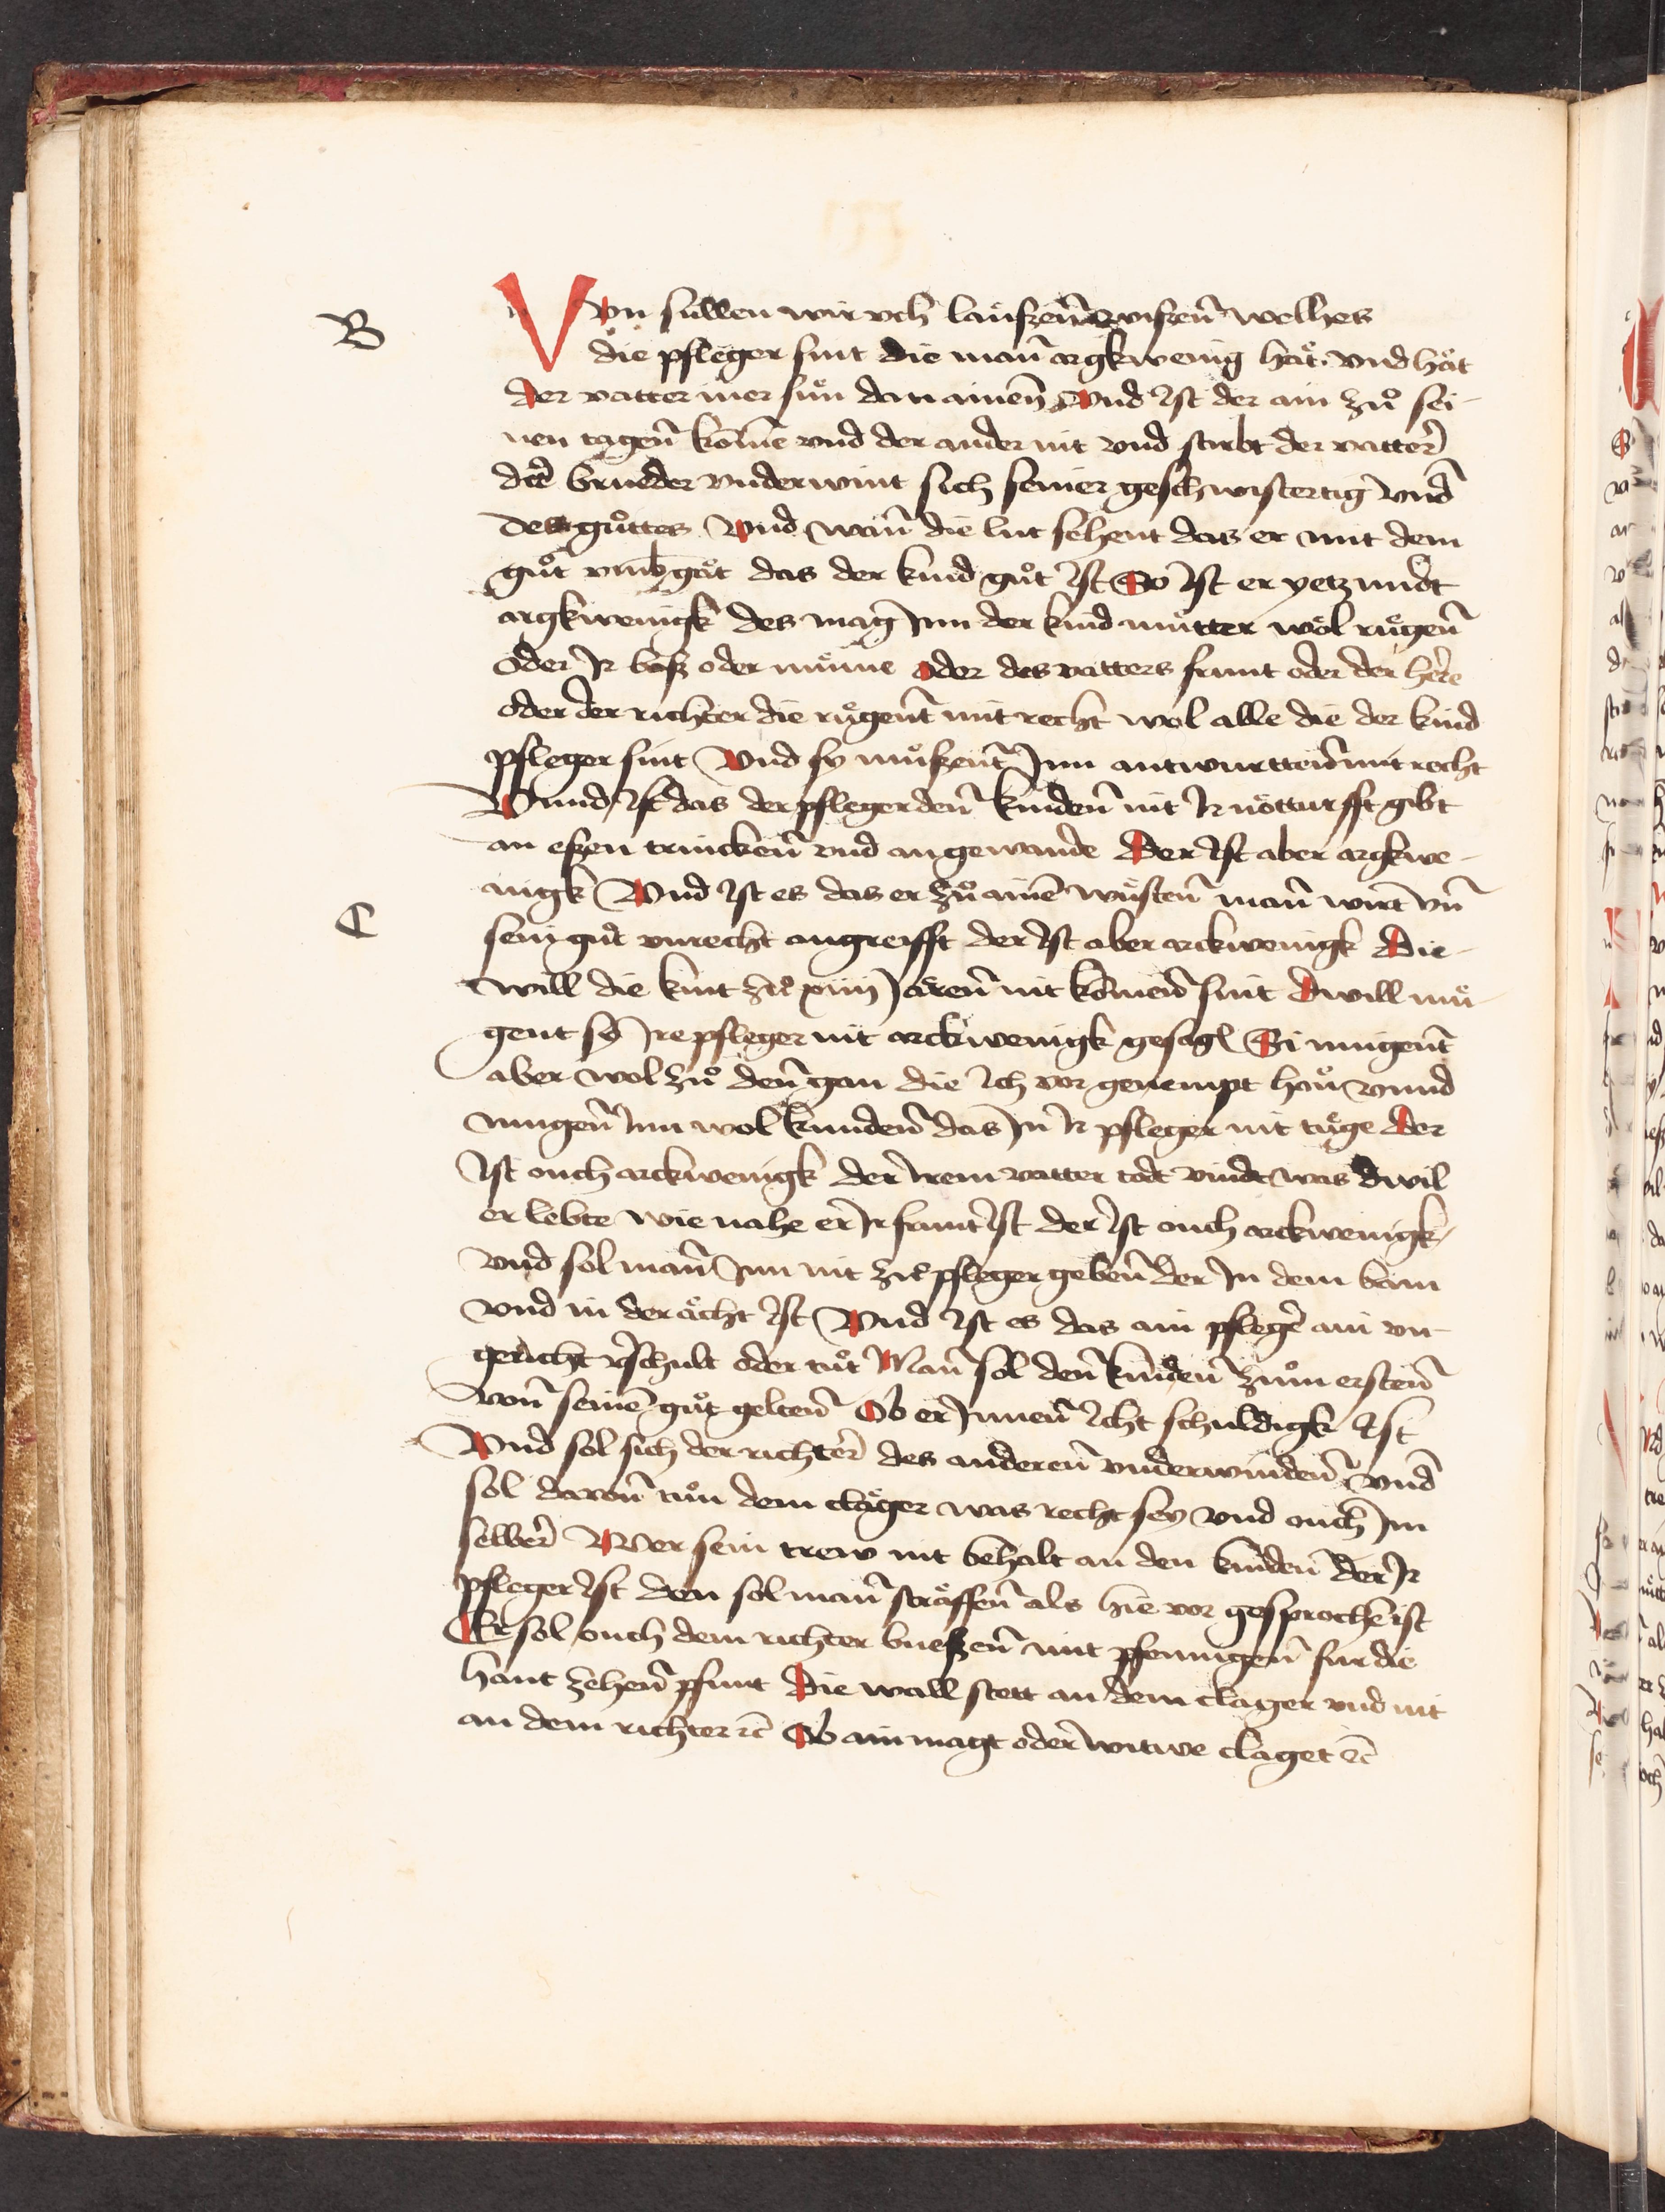 B
Vvn súllen wir vch laúszen̄ wiszen̄ welhes
die pfleger sint die man̄ argkwenig hăt. vnd hăt
der vatter mer sún dan ainen̄ Vnd Ist der ain zů sei-
nen tagen̄ kom̄e vnd der ander nit vnd stirbt der vatter̄
der brueder vnderwint sich seiner geschwistertig vnd
des gůttes Vnd wan̄ die lut sehent das er mit dem
gůt vmb găt das der kind gůt Ist So Ist er yetzundt
argkwenigk des mag Inn der kind mutter wol růgen̄
oder Ir basz oder mume oder des vatters frunt oder der here
oder der richter die růgent mit recht wol alle die der kind
pfleger sint Vnd sy můszent Inn antwurtten̄ mit recht
Vnnd Ist das der pfleger den̄ kinden̄ nit Ir nŏtturfft gibt
an eszen trincken̄ vnd an gewande Der Ist aber argkwe-
C
nigk Vnd Ist es das er zů ainē wůsten̄ man̄ wirt vn̄
sein gůt vnrecht angreifft der Ist aber arckwenigk Die-
will die kint zů xiiij Jaren̄ nit komen̄ sint Dwill mú-
gent sy Ire pfleger nit arckwenigk gesagn̄ Si mugent
aber wol zů den̄ gan die Ich vor genempt han̄ vnnd
mugen̄ Inn wol kunden̄ das In Ir pfleger nit tuge der
Ist ouch arckwenigk der Irem vatter todt vindt was dwil
er lebte wie nahe er Ir frunt Ist der Ist ouch arckwenigk
vnd sol man̄ Inn nit zů pfleger geben̄ der In dem bann
vnd in der ăcht Ist Vnd Ist es das ain pfleger ain vn-
gericht verschult oder tůt Man̄ sol den̄ kinden̄ zům ersten̄
von̄ seinē gůt gelten̄ Ob er Innen̄ Icht schuldigk Ist
Vnd sol sich der richter des anderen̄ vnderwinden̄ vnd
sol davon̄ tůn dem clager was recht sey vnd ouch Im
selber Wer sein trew nit behalt an den kinden der Ir
pfleger Ist den sol man̄ străffen̄ als hie vor gesprochē ist
Er sol ouch dem richter bueszen̄ mit pfennigen̄ fur die
hant zehen̄ pfunt die wall stett an dem clager vnd nit
an dem richter etc̄ Ob ain magt oder witwe claget etc̄